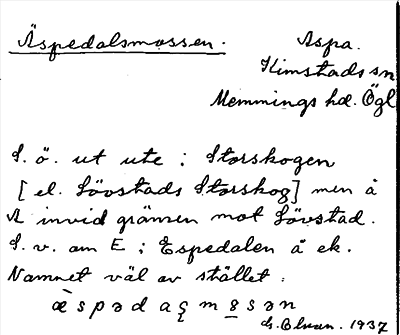 Äspedalsmossen.
Aspa.
Kimstads sn
Memmings hd. Ögl
S. ö. ut ute i Storskogen
[el. Lövstads Storskog] men å
A invid gränsen mot Lövstad.
S. v. om E i Espedalen å ek.
Namnet väl av stället:
æ̀spədaȿmꞩsən
1937